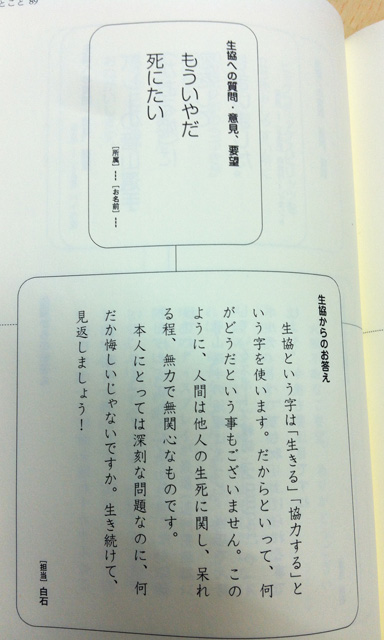 とこと 89
生協への質問・意見、要望
もういやだ
死にたい
[所属] --- [お名前] ---
生協からのお答え
生協という字は「生きる」「協力する」と
いう字を使います。だからといって、何
がどうだという事もございません。この
ように、人間は他人の生死に関し、呆れ
る程、無力で無関心なものです。
本人にとっては深刻な問題なのに、何
だか悔しいじゃないですか。生き続けて、
見返しましょう！
[担当] 白石